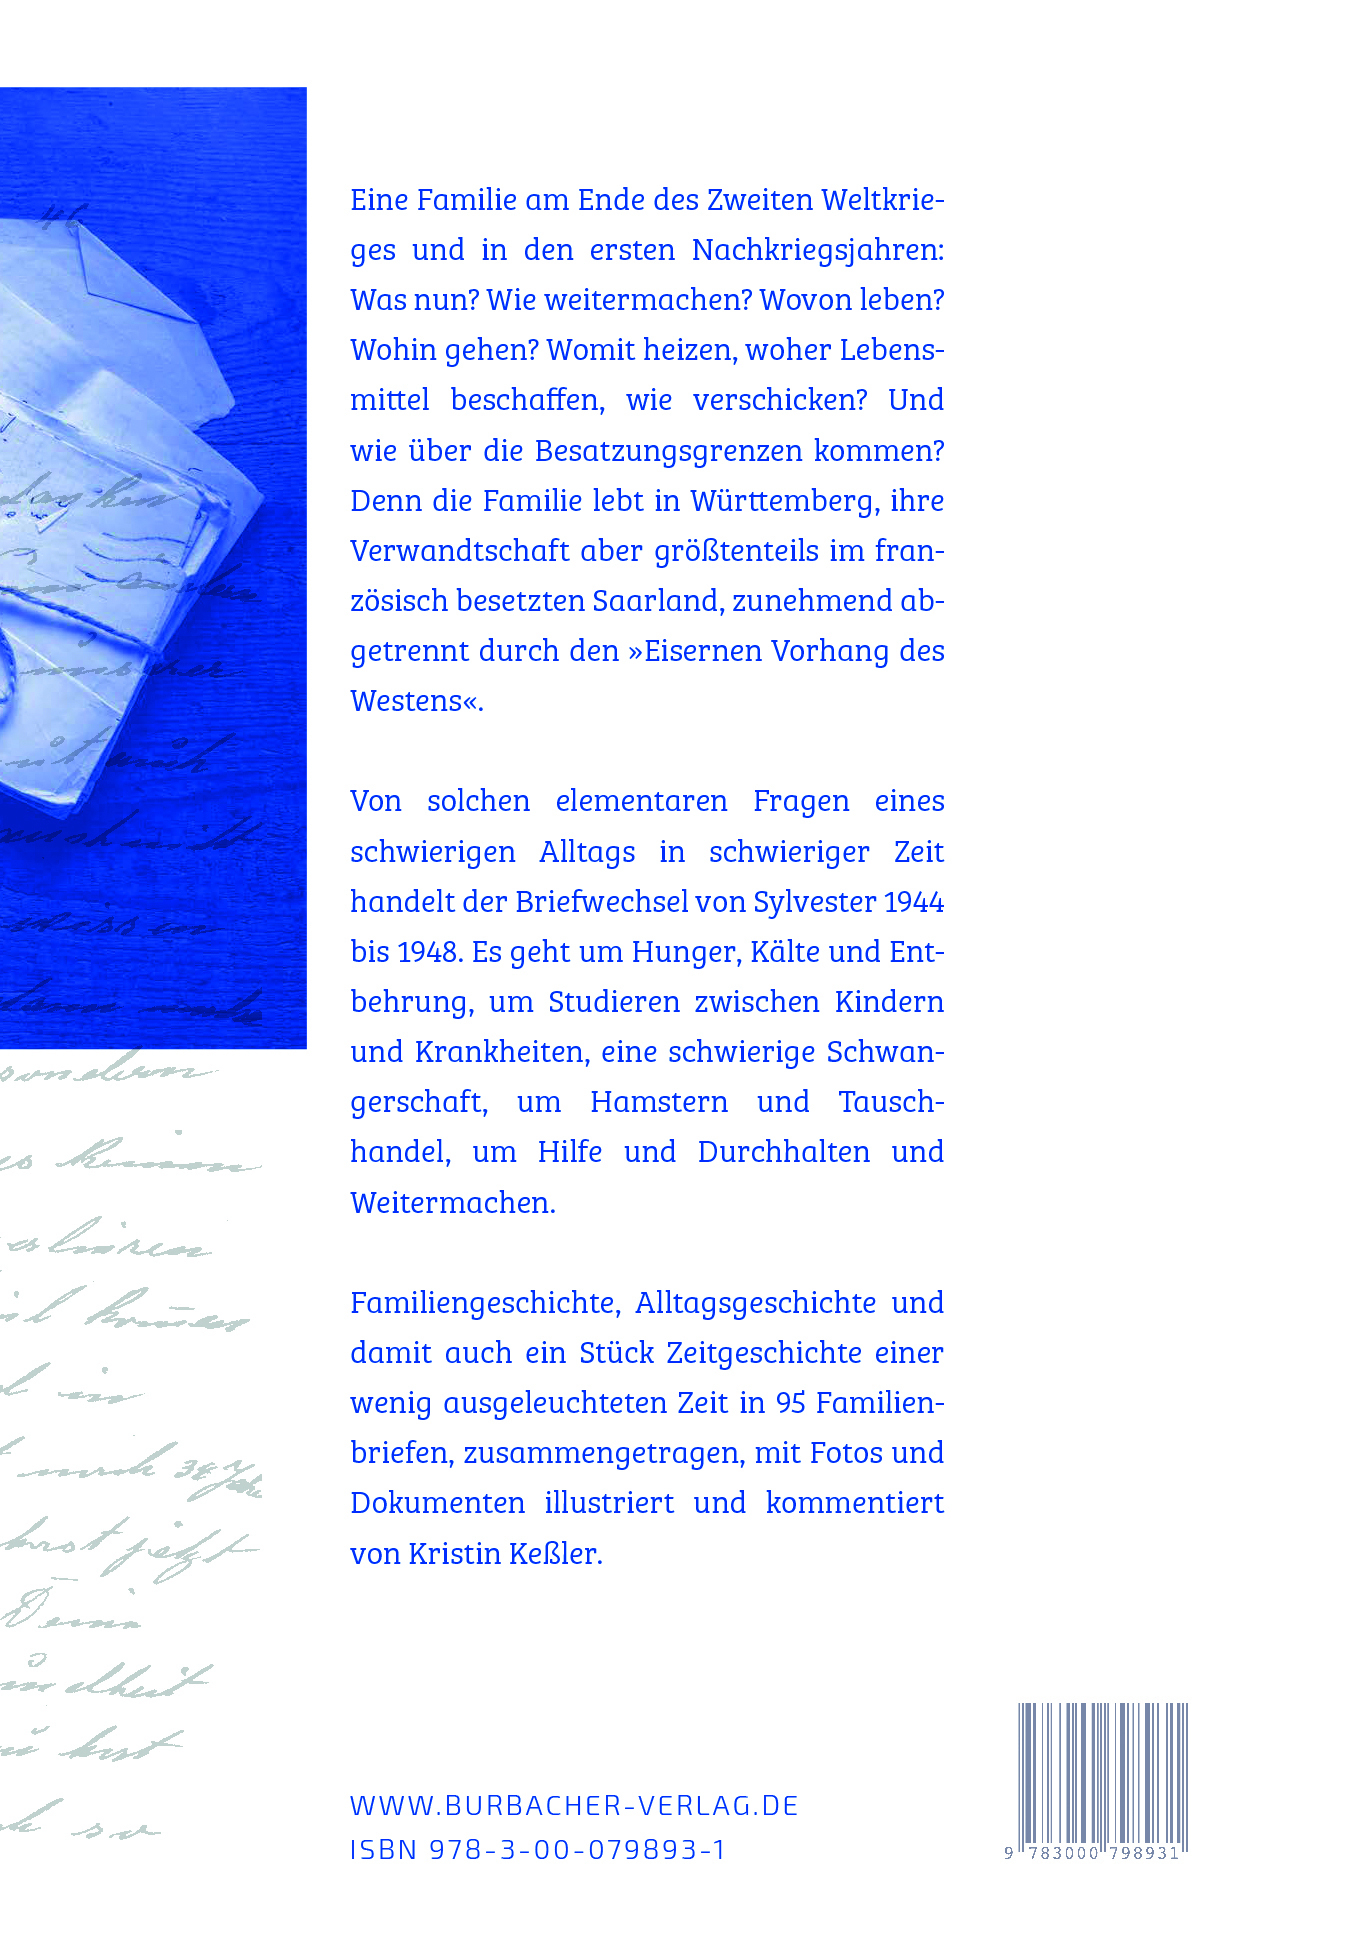 Eine Familie am Ende des Zweiten Weltkrie-
ges und in den ersten Nachkriegsjahren:
Was nun? Wie weitermachen? Wovon leben?
Wohin gehen? Womit heizen, woher Lebens-
mittel beschaffen, wie verschicken? Und
wie über die Besatzungsgrenzen kommen?
Denn die Familie lebt in Württemberg, ihre
Verwandtschaft aber größtenteils im fran-
zösisch besetzten Saarland, zunehmend ab-
getrennt durch den »Eisernen Vorhang des
Westens«.
Von solchen elementaren Fragen eines
schwierigen Alltags in schwieriger Zeit
handelt der Briefwechsel von Sylvester 1944
bis 1948. Es geht um Hunger, Kälte und Ent-
behrung, um Studieren zwischen Kindern
und Krankheiten, eine schwierige Schwan-
gerschaft, um Hamstern und Tausch-
handel, um Hilfe und Durchhalten und
Weitermachen.
Familiengeschichte, Alltagsgeschichte und
damit auch ein Stück Zeitgeschichte einer
wenig ausgeleuchteten Zeit in 95 Familien-
briefen, zusammengetragen, mit Fotos und
Dokumenten illustriert und kommentiert
von Kristin Keßler.
WWW.BURBACHER-VERLAG.DE
ISBN 978-3-00-079893-1
9 783000 798931
46
sondern
in
jetzt